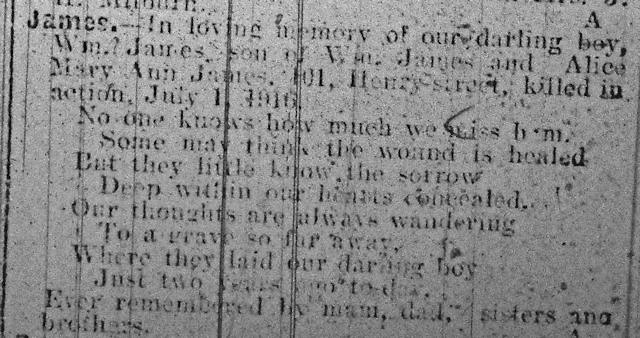 A
James.—In loving memory of our darling boy,
Wm. James, son of Wm. James and Alice
Mary Ann James, 101, Henry-street, killed in
action, July 1, 1916.
No one knows how much we miss him.
Some may think the wound is healed
But they little know the sorrow
Deep within our hearts concealed.
Our thoughts are always wandering
To a grave so far away,
Where they laid our darling boy
Just two years ago to-day.
Ever remembered by mam, dad, sisters and
brothers.